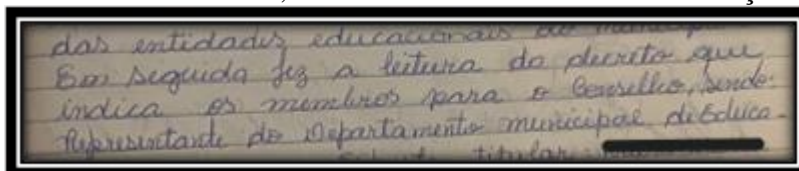 das entidades educacionais do municipi
Em seguida fez a leitura do decreto que
indica os membros para o Conselho, sendo:
Representante do Departamento municipal de Educa-
titular